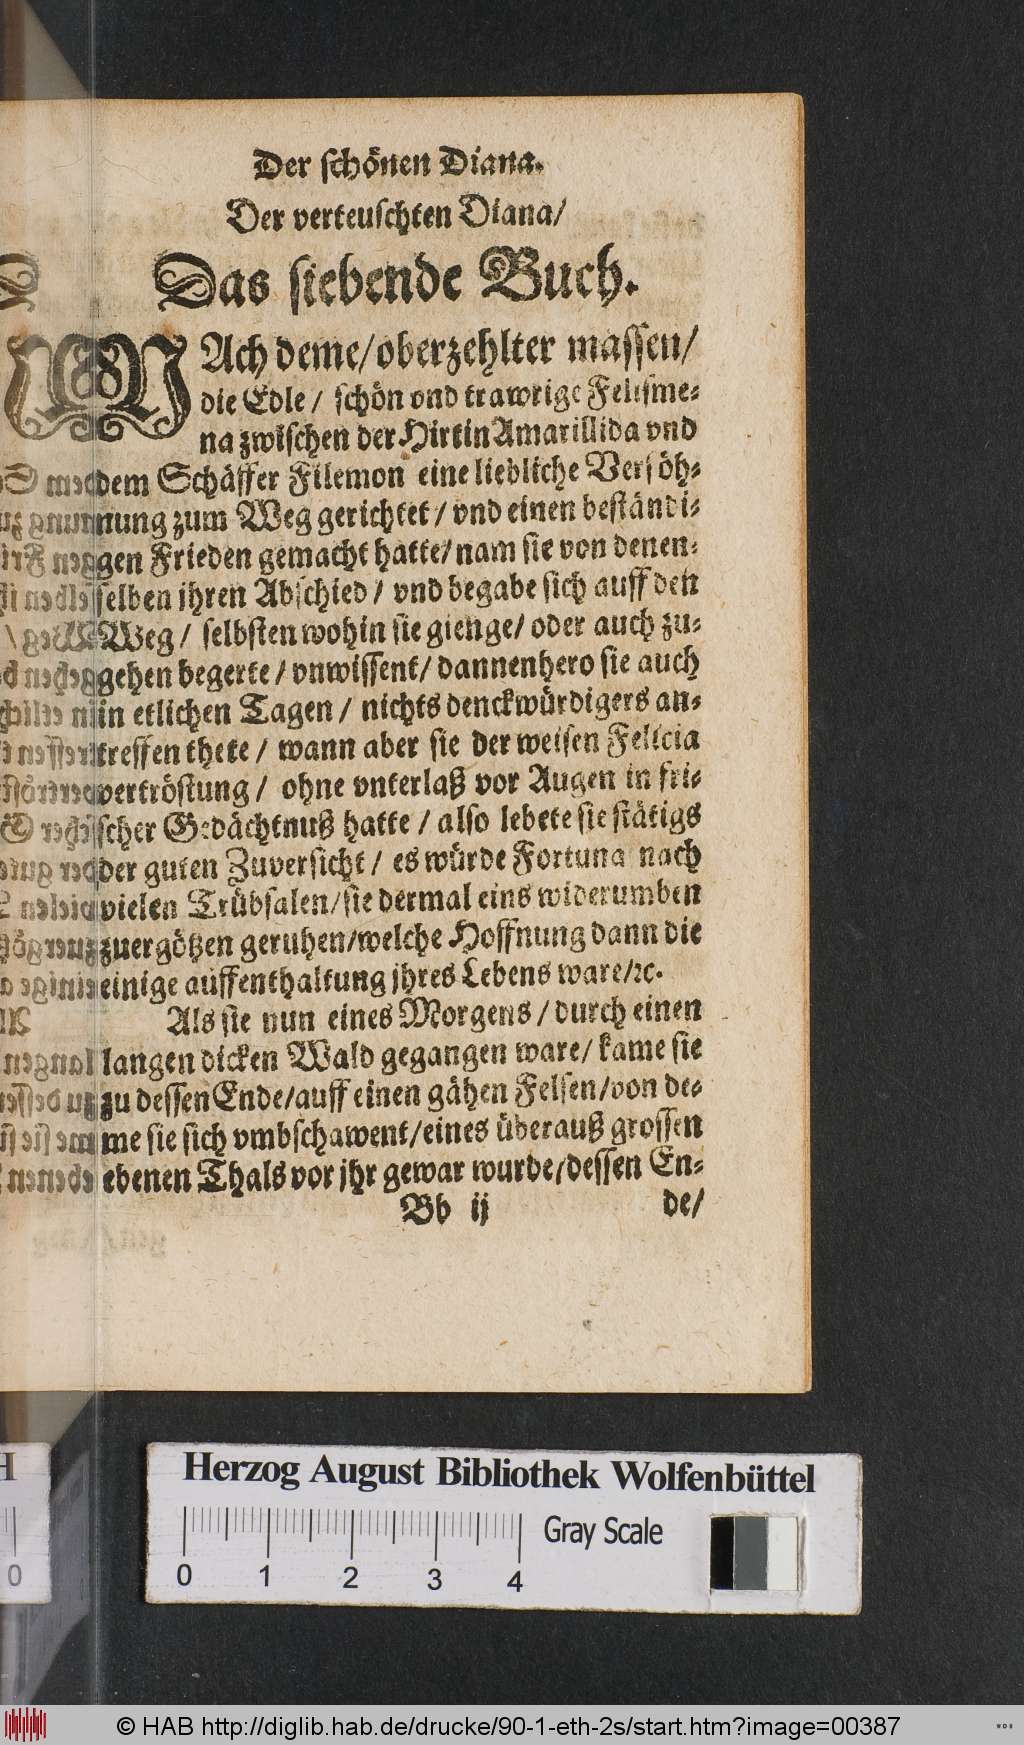 Der schönen Diana.
Der verteuschten Diana/
Das siebende Buch.
NAch deme/oberzehlter massen/
die Edle/ schön vnd trawrige Felisme-
na zwischen der Hirtin Amarillida vnd
dem Schäffer Filemon eine liebliche Versöh-
nung zum Weg gerichtet/ vnd einen beständi-
gen Frieden gemacht hatte/ nam sie von denen-
selben jhren Abschied/ vnd begabe sich auff den
Weg/ selbsten wohin sie gienge/ oder auch zu-
gehen begerte/ vnwissent/ dannenhero sie auch
in etlichen Tagen/ nichts denckwürdigers an-
treffen thete/ wann aber sie der weisen Felicia
vertröstung/ ohne vnterlaß vor Augen in fri-
scher Gedächtnuß hatte/ also lebete sie stätigs
der guten Zuversicht/ es würde Fortuna nach
vielen Trübsalen/sie dermal eins widerumben
zuergötzen geruhen/welche Hoffnung dann die
einige auffenthaltung jhres Lebens ware/ꝛc.
Als sie nun eines Morgens/durch einen
langen dicken Wald gegangen ware/ kame sie
zu dessen Ende/auff einen gähen Felsen/von de-
me sie sich vmbschawent/eines überauß grossen
ebenen Thals vor jhr gewar wurde/dessen En-
Bb ij de/
Herzog August Bibliothek Wolfenbüttel
Gray Scale
0 0 1 2 3 4
© HAB http://diglib.hab.de/drucke/90-1-eth-2s/start.htm?image=00387